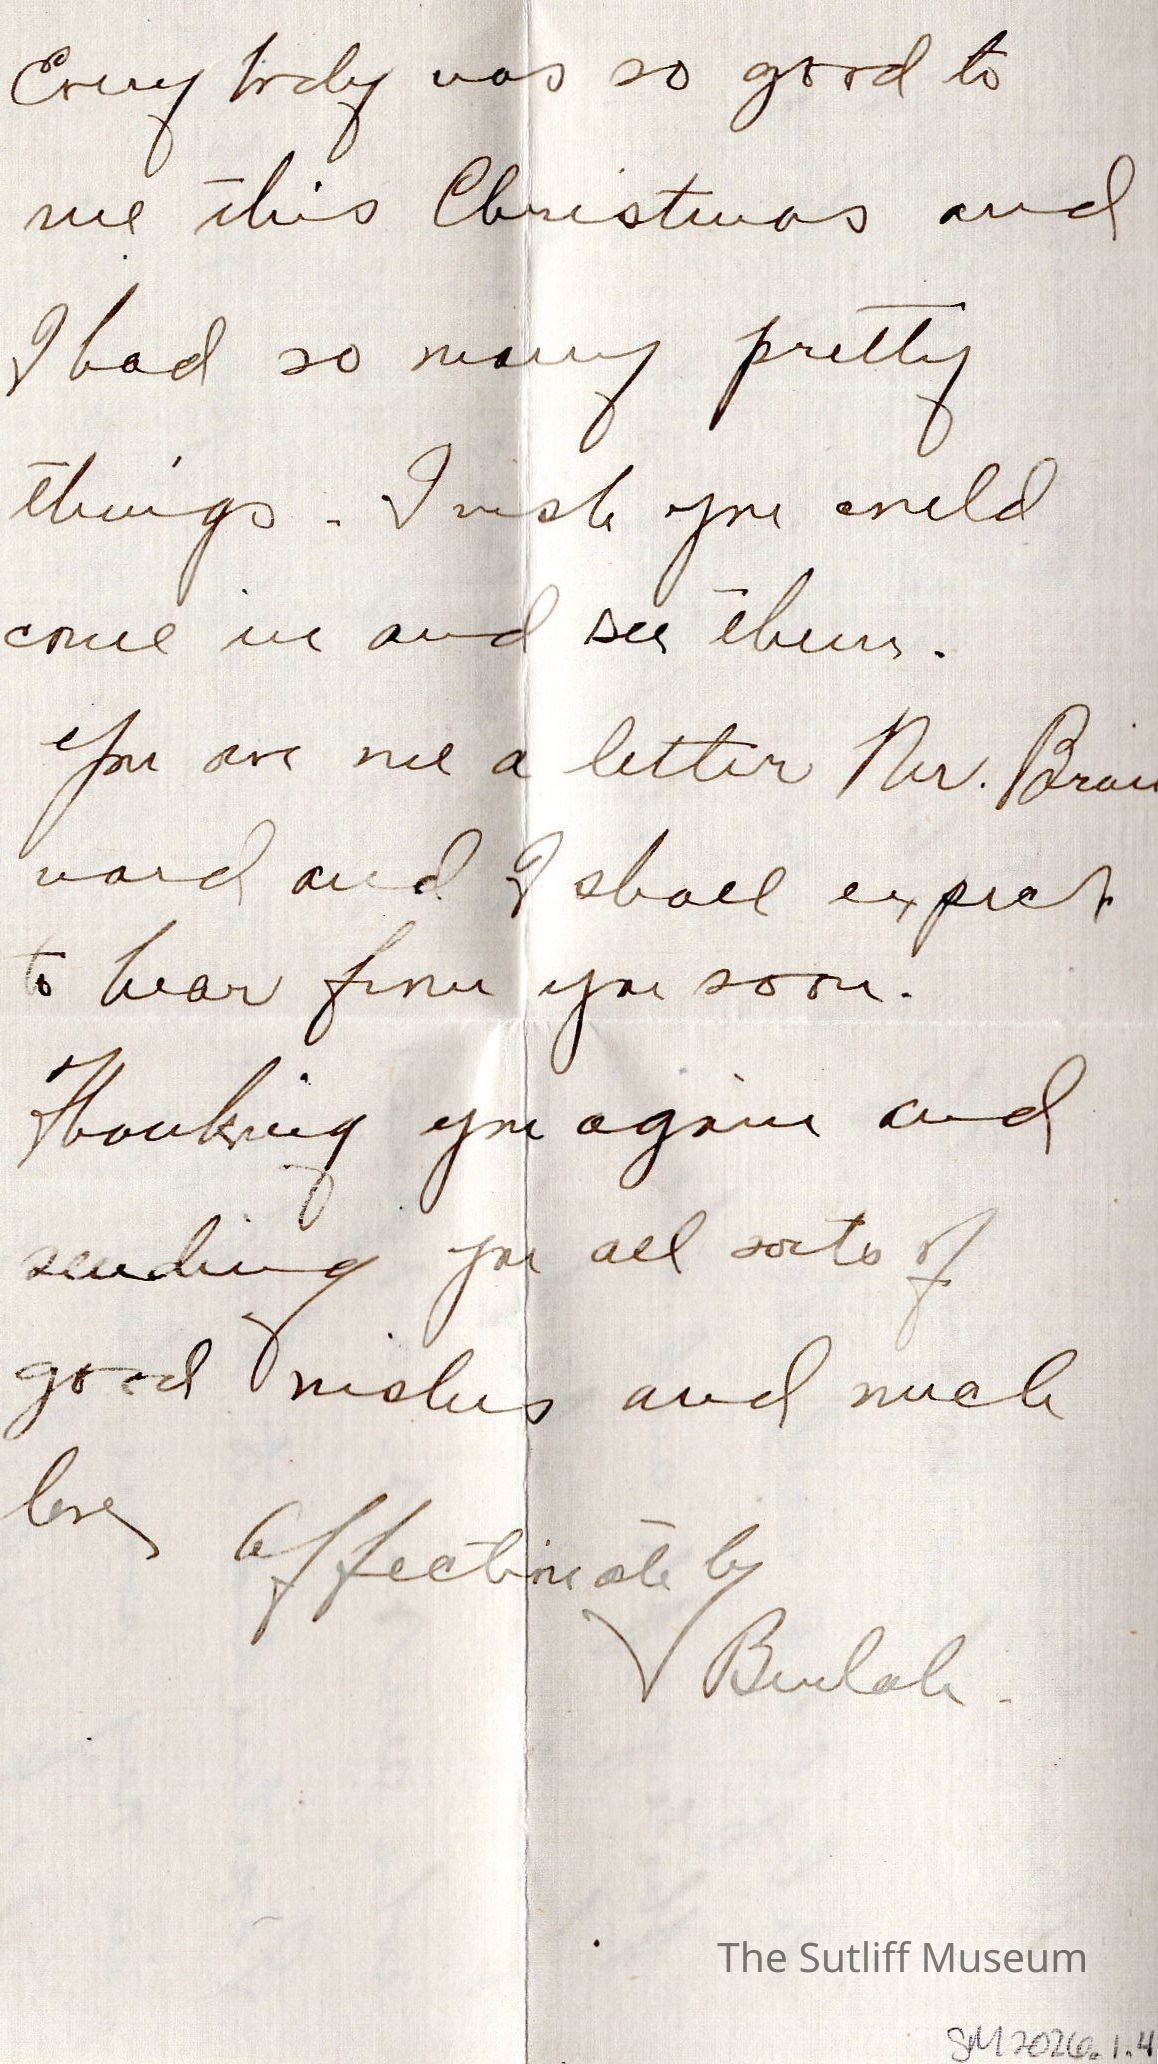 Every body was so good to
me this Christmas and
I had so many pretty
things. I wish you could
come in and see them.
You owe me a letter Mr. Brain
ward and I shall expect
to hear from you soon.
Thanking you again and
sending you all sorts of
good wishes and much
love,
Affectionately
Beulah.
The Sutliff Museum
SM2026.1.4